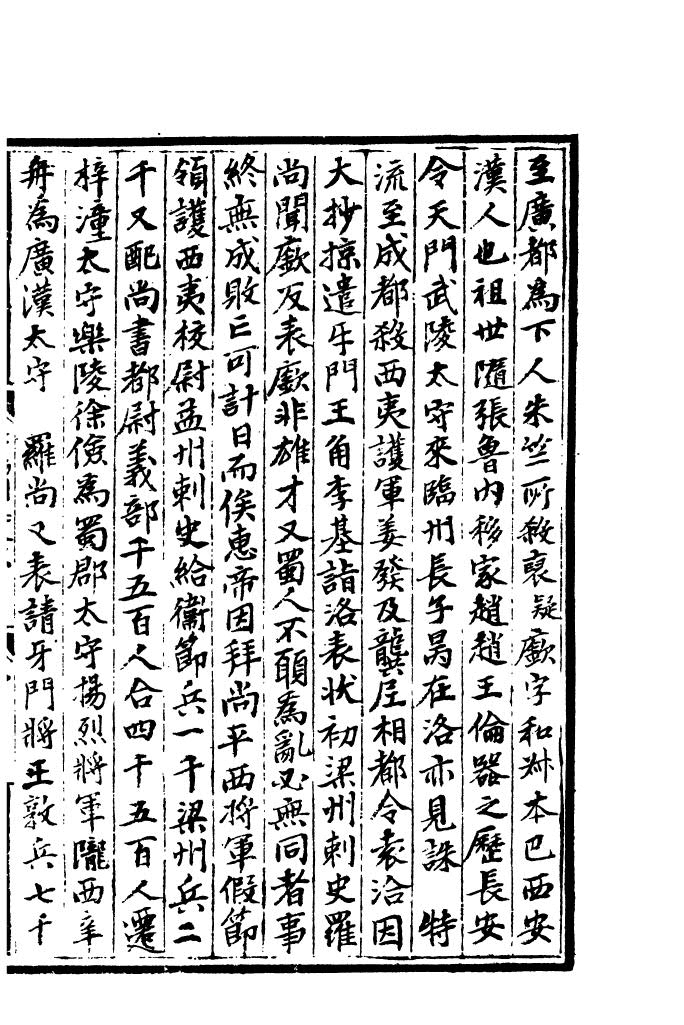 至廣都為下人朱竺所殺裒疑廞字和叔本巴西安
漢人也祖世隨張魯內移家趙趙王倫器之歷長安
令天門武陵太守來臨州長子昺在洛亦見誅　特
流至成都殺西夷護軍姜發及龔尼相都令袁洽因
大抄掠遣牙門王角李基詣洛表狀初梁州刺史羅
尚聞廞反表廞非雄才又蜀人不願為亂必無同者事
終無成敗亡可計日而俟惠帝因拜尚平西將軍假節
領護西夷校尉益州刺史給衛節兵一千梁州兵二
千又配尚書都尉義部千五百人合四千五百人遷
梓潼太守樂陵徐儉為蜀郡太守揚烈將軍隴西辛
冉為廣漢太守　羅尚又表請牙門將王敦兵七千